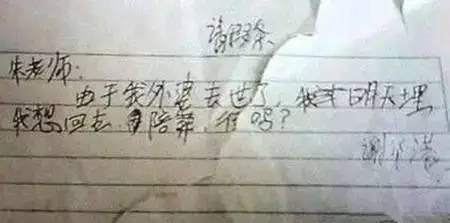 请假条
朱老师:
由于我外婆去世了,我 明天埋
我想回去 陪葬,行吗?
谢